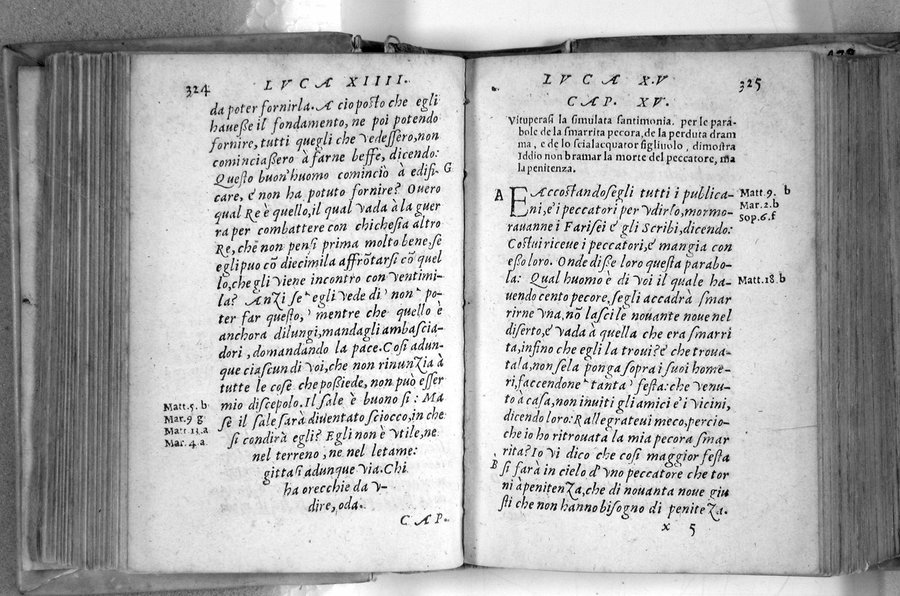 324
LVCA XIIII.
da poter fornirla. A cio posto che egli
hauesse il fondamento, ne poi potendo
fornire, tutti quegli che vedessero, non
cominciassero à farne beffe, dicendo:
Questo buon'huomo cominciò à edifi-
G
care, e non ha potuto fornire? Ouero
qual Re è quello, il qual vada à la guer
ra per combattere con chichesia altro
Re, che non pensi prima molto bene, se
egli puo cō diecimila affrōtarsi cō quel
lo, che gli viene incontro con ventimi-
la? Anzi se ̔ egli vede di ̓ non ̔ po-
ter far questo, ̓ mentre che quello è
anchora dilungi, mandagli ambascia-
dori, domandando la pace. Cosi adun-
que ciascun di voi, che non rinunzia à
tutte le cose che possiede, non può esser
Matt.5.b
mio discepolo. Il sale è buono si: Ma
Mar.9 g
se il sale sarà diuentato sciocco, in che
Matt.13.a
Mar.4.a
si condirà egli? Egli non è vtile, ne
nel terreno, ne nel letame:
gittasi adunque via. Chi
ha orecchie da v-
dire, oda.
CAP.
LVCA X.V
325
CAP. XV.
Vituperasi la simulata santimonia. per le para-
bole de la smarrita pecora, de la perduta dram
ma, e de lo scialacquator figliuolo, dimostra
Iddio non bramar la morte del peccatore, ma
la penitenza.
A
E Accostandosegli tutti i publica-
Matt.9. b
ni, e i peccatori per vdirlo, mormo-
Mar.2.b
Sop.6.f
rauanne i Farisei e gli Scribi, dicendo:
Costui riceue i peccatori, e mangia con
esso loro. Onde disse loro questa parabo-
la: Qual huomo è di voi il quale ha-
Matt.18.b
uendo cento pecore, segli accadrà smar
rirne vna, nō lasci le nouante noue nel
diserto, e vada à quella che era smarri
ta, infino che egli la troui? e che troua-
tala, non sela ponga sopra i suoi home-
ri, faccendone ̔ tanta ̓ festa: che venu-
to à casa, non inuiti gli amici e i vicini,
dicendo loro: Rallegrateui meco, percio-
che io ho ritrouata la mia pecora smar
rita? Io vi dico che cosi maggior festa
B
si farà in cielo d'vno peccatore che tor
ni à penitenza, che di nouanta noue giu
sti che non hanno bisogno di peniteza.
x 5